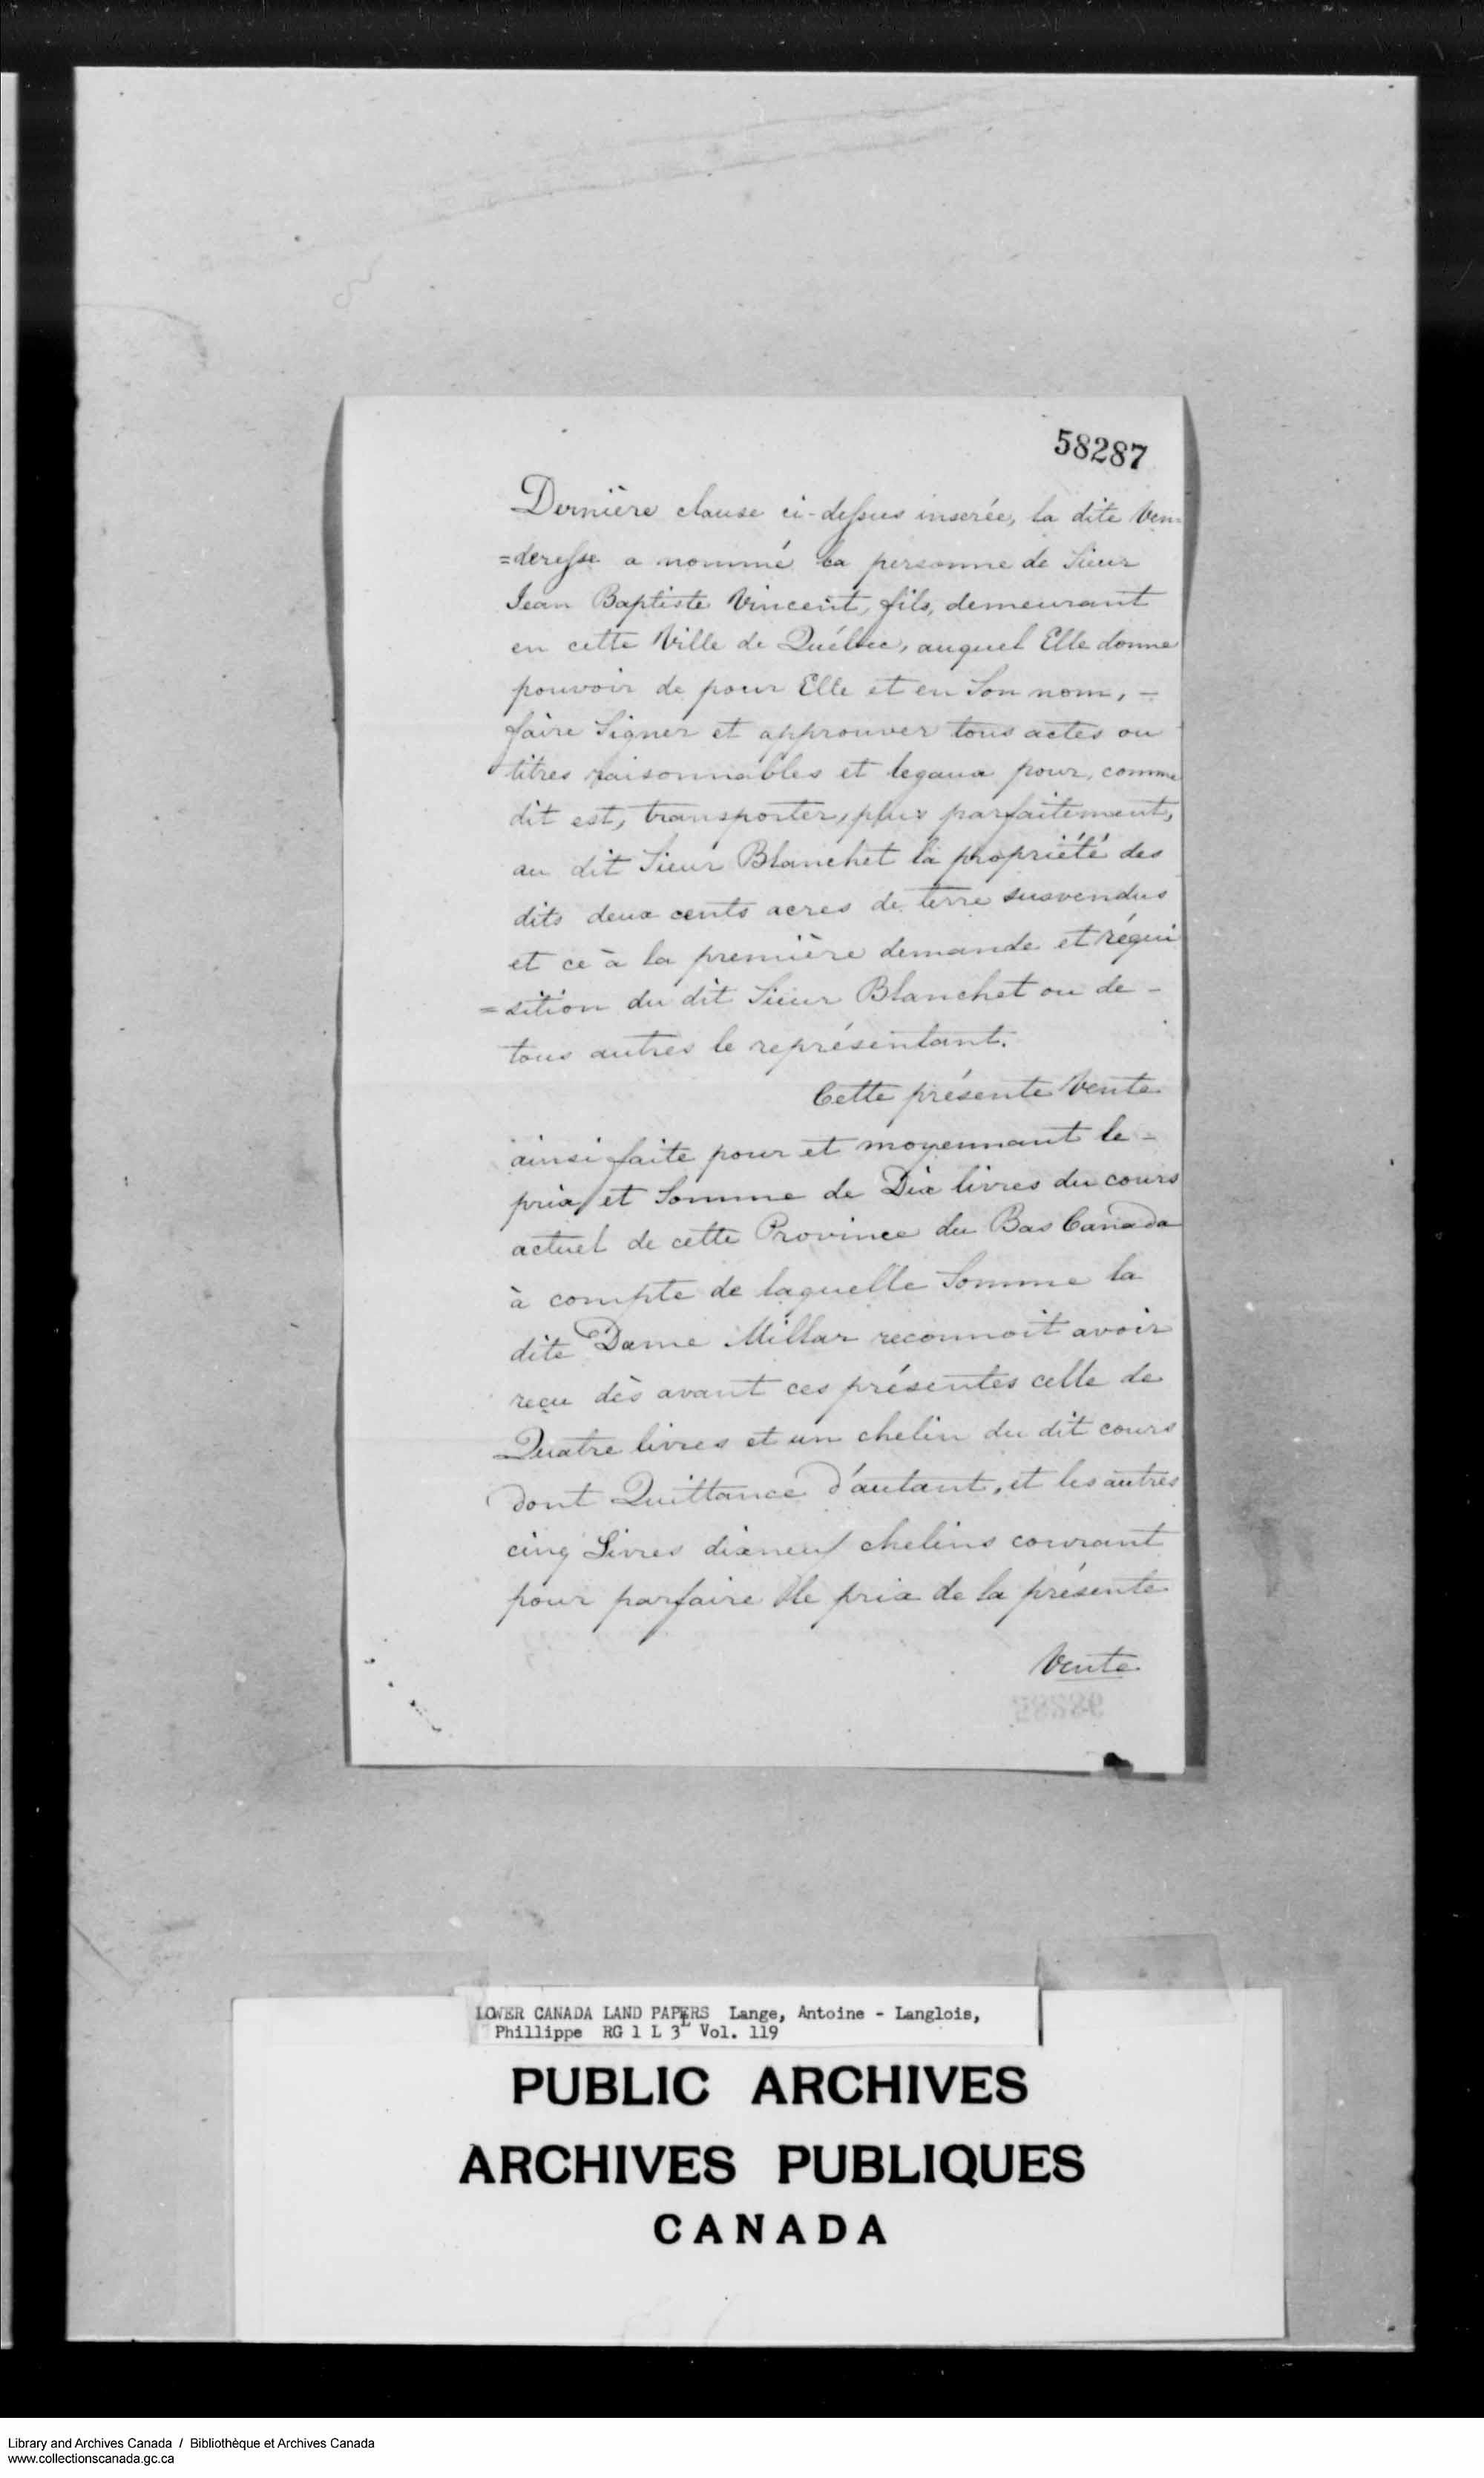 58287
Dernière clause ci-dessus inserée, la dite Ven-
=deresse a nommé la personne de Sieur
Jean Baptiste Vincent, fils, demeurant
en cette Ville de Québec, auquel Elle donne
pouvoir de pour Elle et en Son nom, -
faire Signer et approuver tous actes ou
titres raisonnables et legaux pour, comme
dit est, transporter, plus parfaitement,
au dit Sieur Blanchet la propriété des
dits deux cents acres de terre susvendus
et ce à la première demande et réqui
=sition du dit Sieur Blanchet ou de -
tous autres le représentant.
Cette présente Vente
ainsi faite pour et moyennant le -
prix et Somme de Dix livres du cours
actuel de cette Province du Bas Canada
à compte de laquelle Somme la
dite Dame Millar reconnoit avoir
reçu dès avant ces présentes celle de
Quatre livres et un chelin du dit cours
dont Quittance d'autant, et les autres
cinq Livres dixneuf chelins courant
pour parfaire le prix de la présente
Vente
LOWER CANADA LAND PAPERS Lange, Antoine - Langlois,
Phillippe RG 1 L 3L Vol. 119
PUBLIC ARCHIVES
ARCHIVES PUBLIQUES
CANADA
Library and Archives Canada / Bibliothèque et Archives Canada
www.collectionscanada.gc.ca